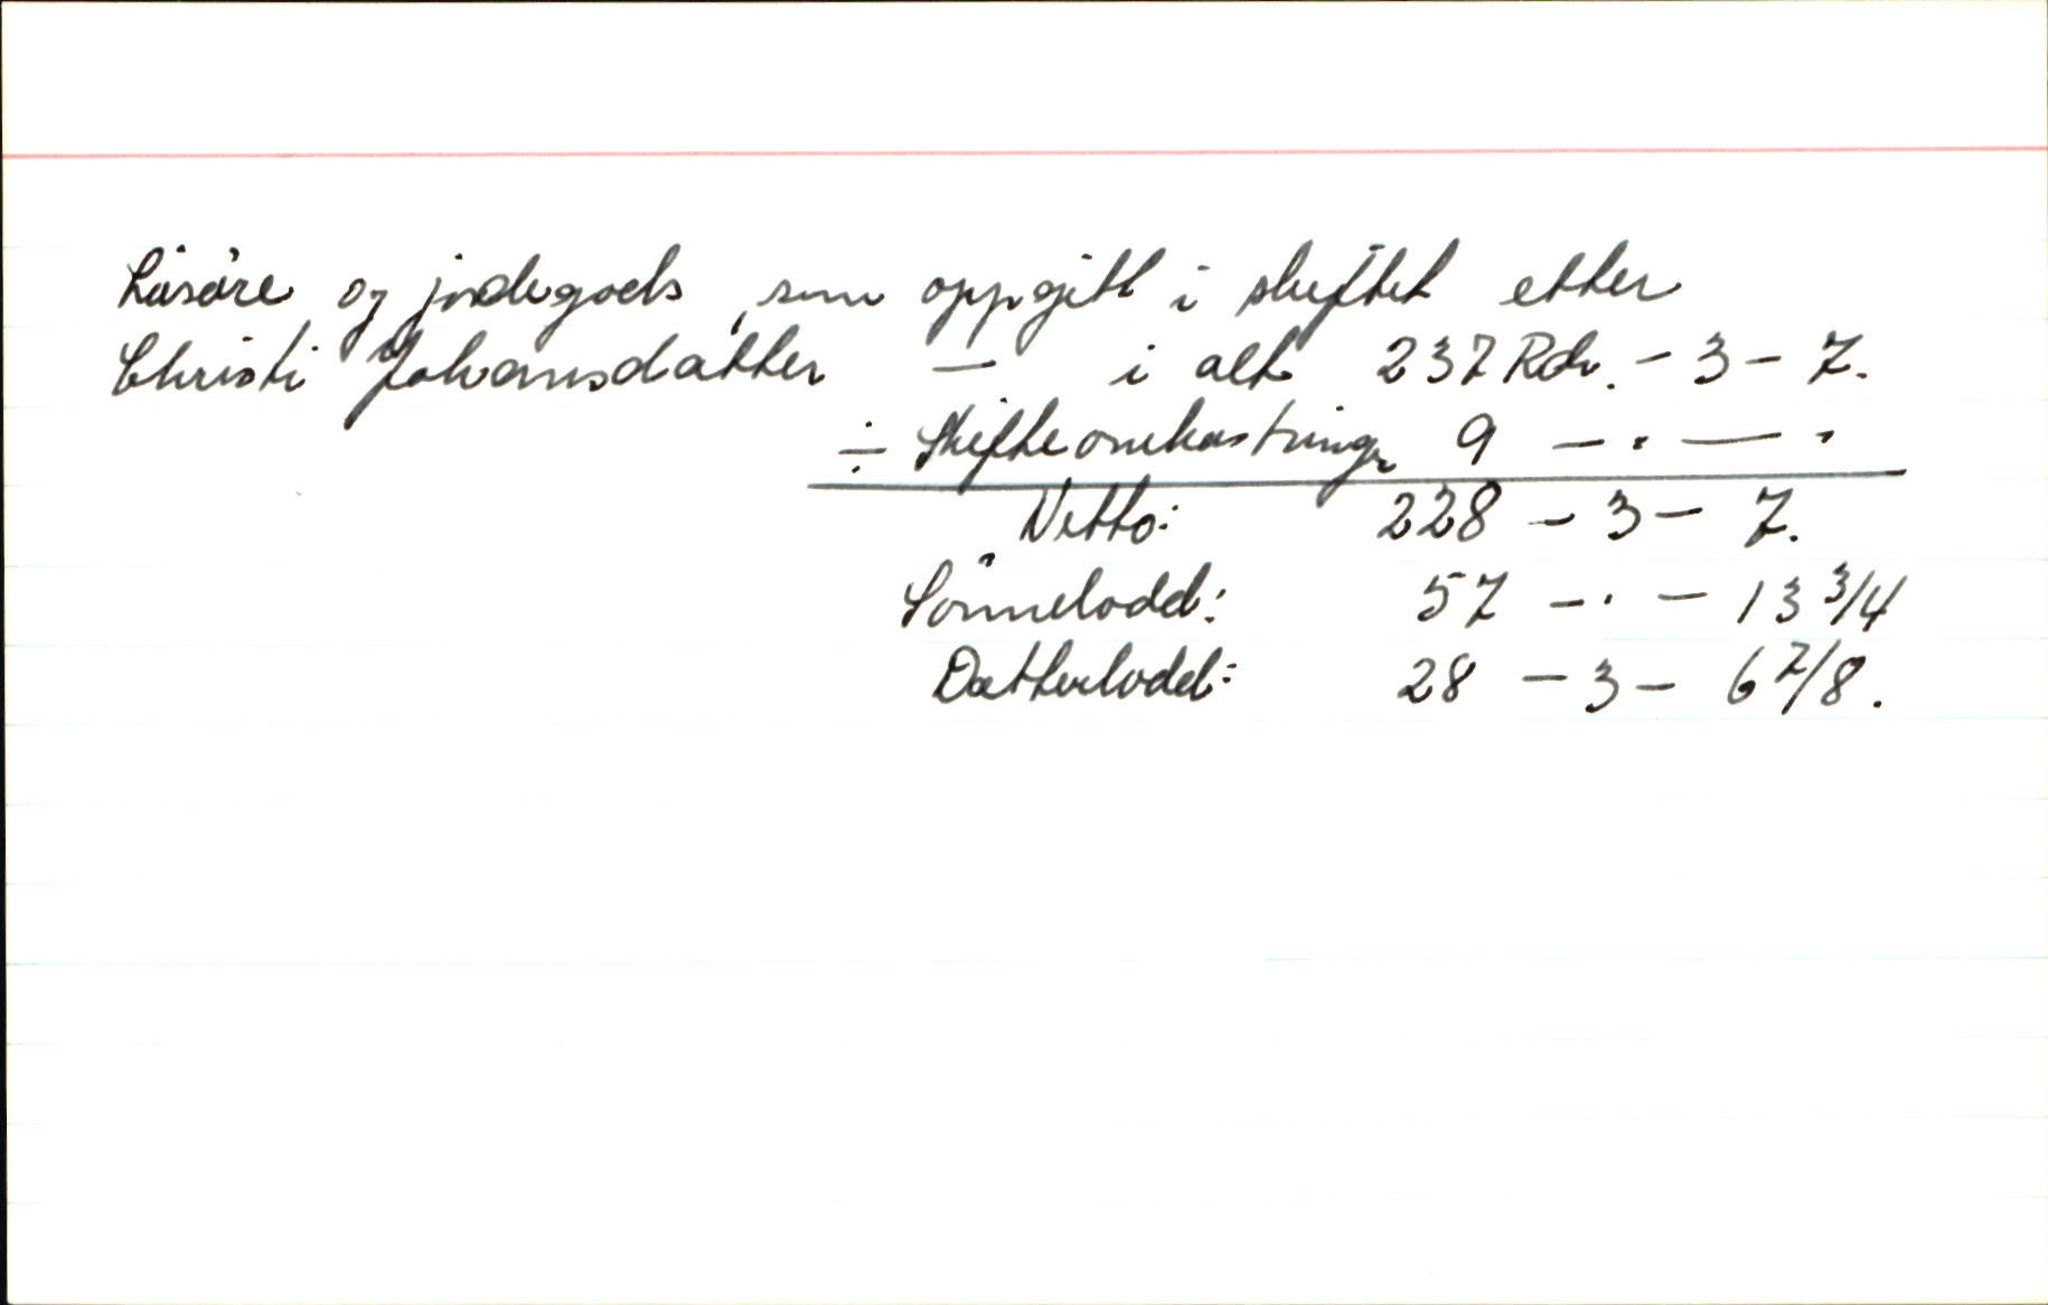 Lösöre og jordegods, som oppgitt i skiftet etter
Christi Johansdatter — i alt 237 Rdr. - 3 - 7.
÷ Skifteomkostninger 9 - . - .
Netto: 228 - 3 - 7.
Sönnelodd: 57 - . - 13 3/4
Datterlodd: 28 - 3 - 6 7/8.